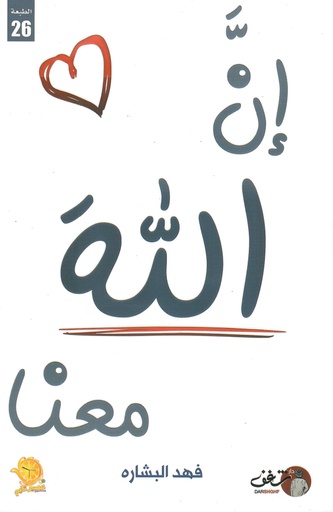 الطبعة
26
إنَّ
اللّٰهَ
معنا
فهد البشاره
شغف
DARSHGHF